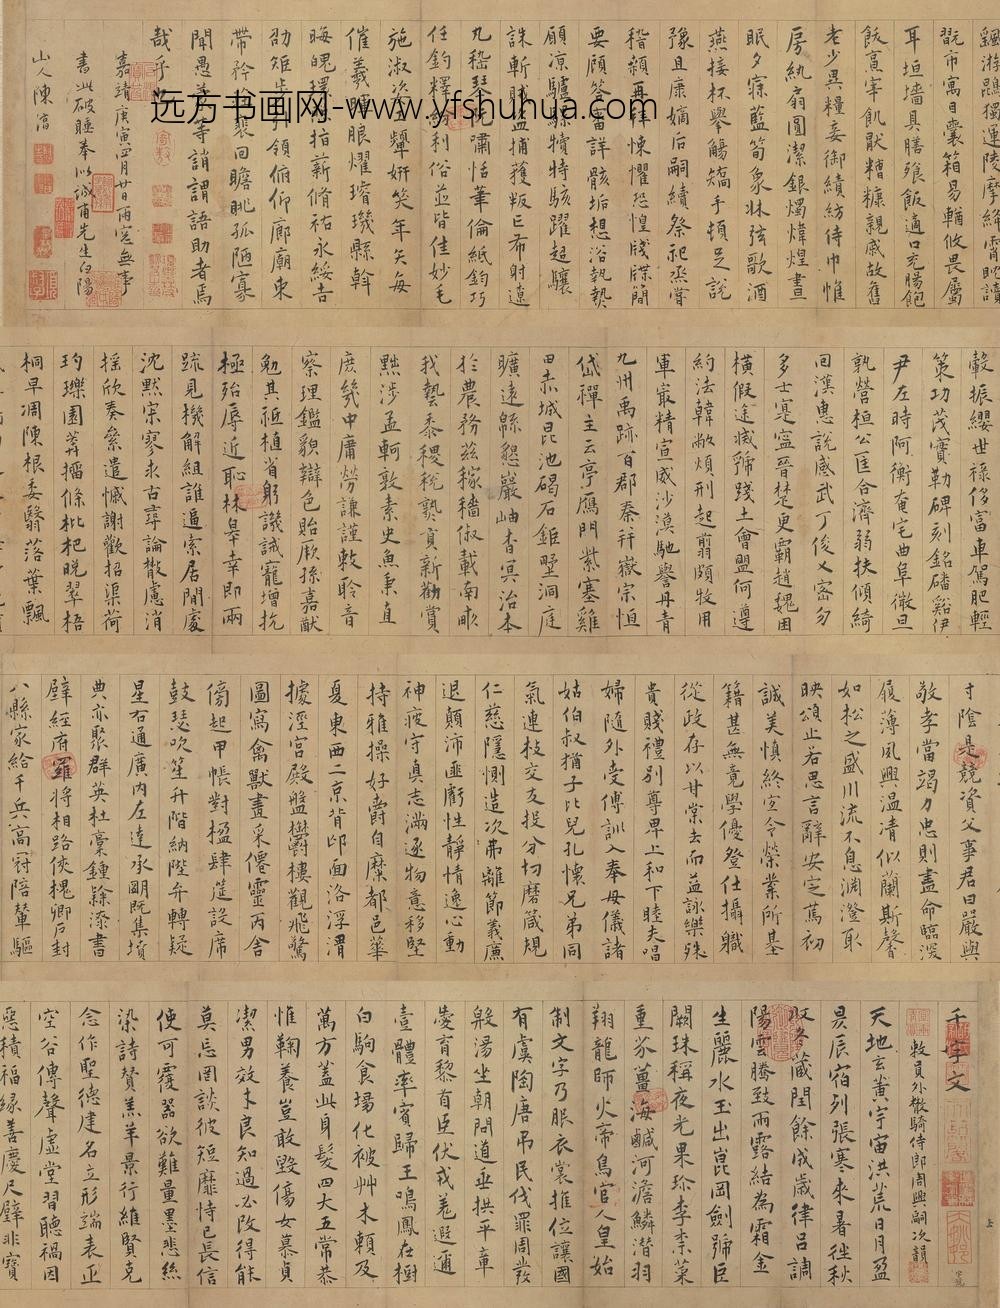 千字文
敕員外散騎侍郎周興嗣次韻
天地玄黃宇宙洪荒日月盈
昃辰宿列張寒來暑往秋
收冬藏閏餘成歲律呂調
陽雲騰致雨露結為霜金
生麗水玉出崑岡劍號巨
闕珠稱夜光果珍李柰菜
重芥薑海鹹河澹鱗潛羽
翔龍師火帝鳥官人皇始
制文字乃服衣裳推位讓國
有虞陶唐吊民伐罪周發
殷湯坐朝問道垂拱平章
愛育黎首臣伏戎羌遐邇
壹體率賓歸王鳴鳳在樹
白駒食場化被艸木賴及
萬方蓋此身髮四大五常恭
惟鞠養豈敢毀傷女慕貞
潔男效才良知過必改得能
莫忘罔談彼短靡恃己長信
使可覆器欲難量墨悲絲
染詩贊羔羊景行維賢克
念作聖德建名立形端表正
空谷傳聲虛堂習聽禍因
惡積福緣善慶尺璧非寶
寸陰是競資父事君曰嚴與
敬孝當竭力忠則盡命臨深
履薄夙興溫清似蘭斯馨
如松之盛川流不息淵澄取
映容止若思言辭安定篤初
誠美慎終宜令榮業所基
籍甚無竟學優登仕攝職
從政存以甘棠去而益詠樂殊
貴賤禮別尊卑上和下睦夫唱
婦隨外受傅訓入奉母儀諸
姑伯叔猶子比兒孔懷兄弟同
氣連枝交友投分切磨箴規
仁慈隱惻造次弗離節義廉
退顛沛匪虧性靜情逸心動
神疲守真志滿逐物意移堅
持雅操好爵自縻都邑華
夏東西二京背邙面洛浮渭
據涇宮殿盤鬱樓觀飛驚
圖寫禽獸畫采僊靈丙舍
傍起甲帳對楹肆筵設席
鼓瑟吹笙升階納陛弁轉疑
星右通廣內左達承明既集墳
典亦聚群英杜稾鍾隸漆書
壁經府羅將相路俠槐卿戶封
八縣家給千兵高冠陪輦驅
轂振纓世祿侈富車駕肥輕
策功茂實勒碑刻銘磻谿伊
尹佐時阿衡奄宅曲阜微旦
孰營桓公匡合濟弱扶傾綺
回漢惠說感武丁俊乂密勿
多士寔寧晉楚更霸趙魏困
橫假途滅虢踐土會盟何遵
約法韓弊煩刑起翦頗牧用
軍最精宣威沙漠馳譽丹青
九州禹跡百郡秦并嶽宗恒
岱禪主云亭鴈門紫塞雞
田赤城昆池碣石鉅野洞庭
曠遠綿邈巖岫杳冥治本
於農務茲稼穡俶載南畝
我藝黍稷稅熟貢新勸賞
黜陟孟軻敦素史魚秉直
庶幾中庸勞謙謹敕聆音
察理鑑貌辯色貽厥孫嘉猷
勉其祗植省躬譏誡寵增抗
極殆辱近恥林皋幸即兩
疏見機解組誰逼索居閒處
沈默寂寥求古尋論散慮逍
搖欣奏累遣慼謝歡招渠荷
的歷園莽抽條枇杷晚翠梧
桐早凋陳根委翳落葉飄
颻游鵾獨運凌摩絳霄耽讀
翫市寓目囊箱易輶攸畏屬
耳垣墻具膳飧飯適口充腸飽
飫烹宰飢厭糟糠親戚故舊
老少異糧妾御績紡侍巾帷
房紈扇圓潔銀燭煒煌晝
眠夕寐藍筍象牀弦歌酒
燕接杯舉觴矯手頓足說
豫且康嫡后嗣續祭祀烝嘗
稽顙再拜悚懼恐惶牋牒簡
要顧答審詳骸垢想浴執熱
願涼驢騾犢特駭躍超驤
誅斬賊盜捕獲叛亡布射遼
丸嵇琴阮嘯恬筆倫紙鈞巧
任釣釋紛利俗並皆佳妙毛
施淑姿工顰妍笑年矢每
催羲暉朗耀璿璣縣斡
晦魄環照指薪修祜永綏吉
劭矩步引領俯仰廊廟束
帶矜莊裴回瞻眺孤陋寡
聞愚蒙等誚謂語助者焉
哉乎也
嘉靖庚寅四月廿雨窓無事
書此破睡奉似誠甫先生白陽
山人陳淳
远方书画网-www.yfshuhua.com